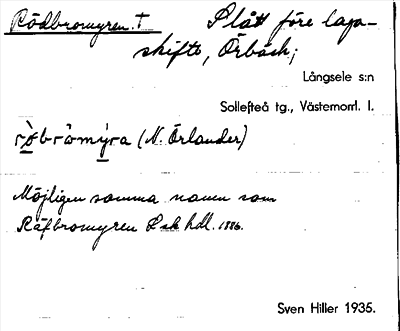 Rödbromyren. † Slått före laga-
skifte, Örbäck;
Långsele s:n
Sollefteå tg., Västernorrl. l.
rö̀brömýra (N. Örlander)
Möjligen samma namn som
Räfbromyren Lsk hdl. 1886.
Sven Hiller 1935.